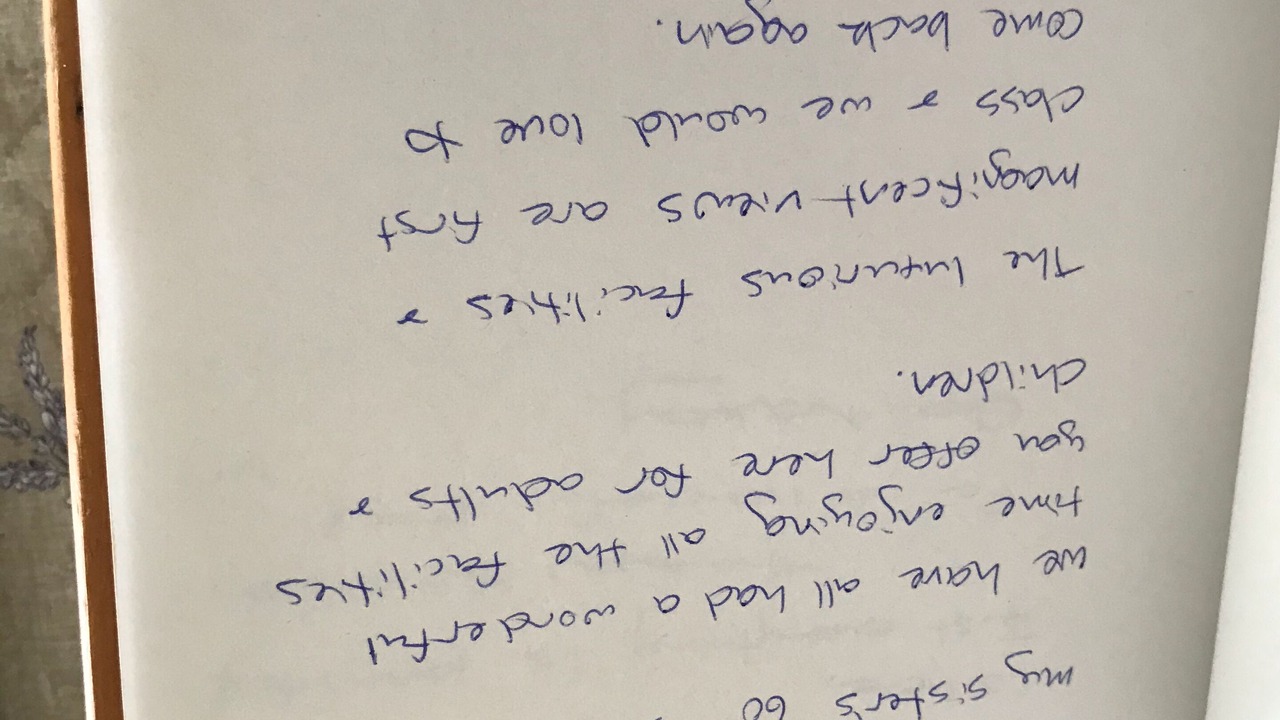 my sister's 60
we have all had a wonderful
time enjoying all the facilities
you offer here for adults &
children.
The luxurious facilities &
magnificent views are first
class & we would love to
come back again.